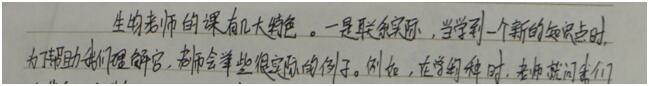 生物老师的课有几大特色。一是联系实际,当学到一个新的知识点时,
为了帮助我们理解它,老师会举些很实际的例子。例如,在学到种时,老师就问我们